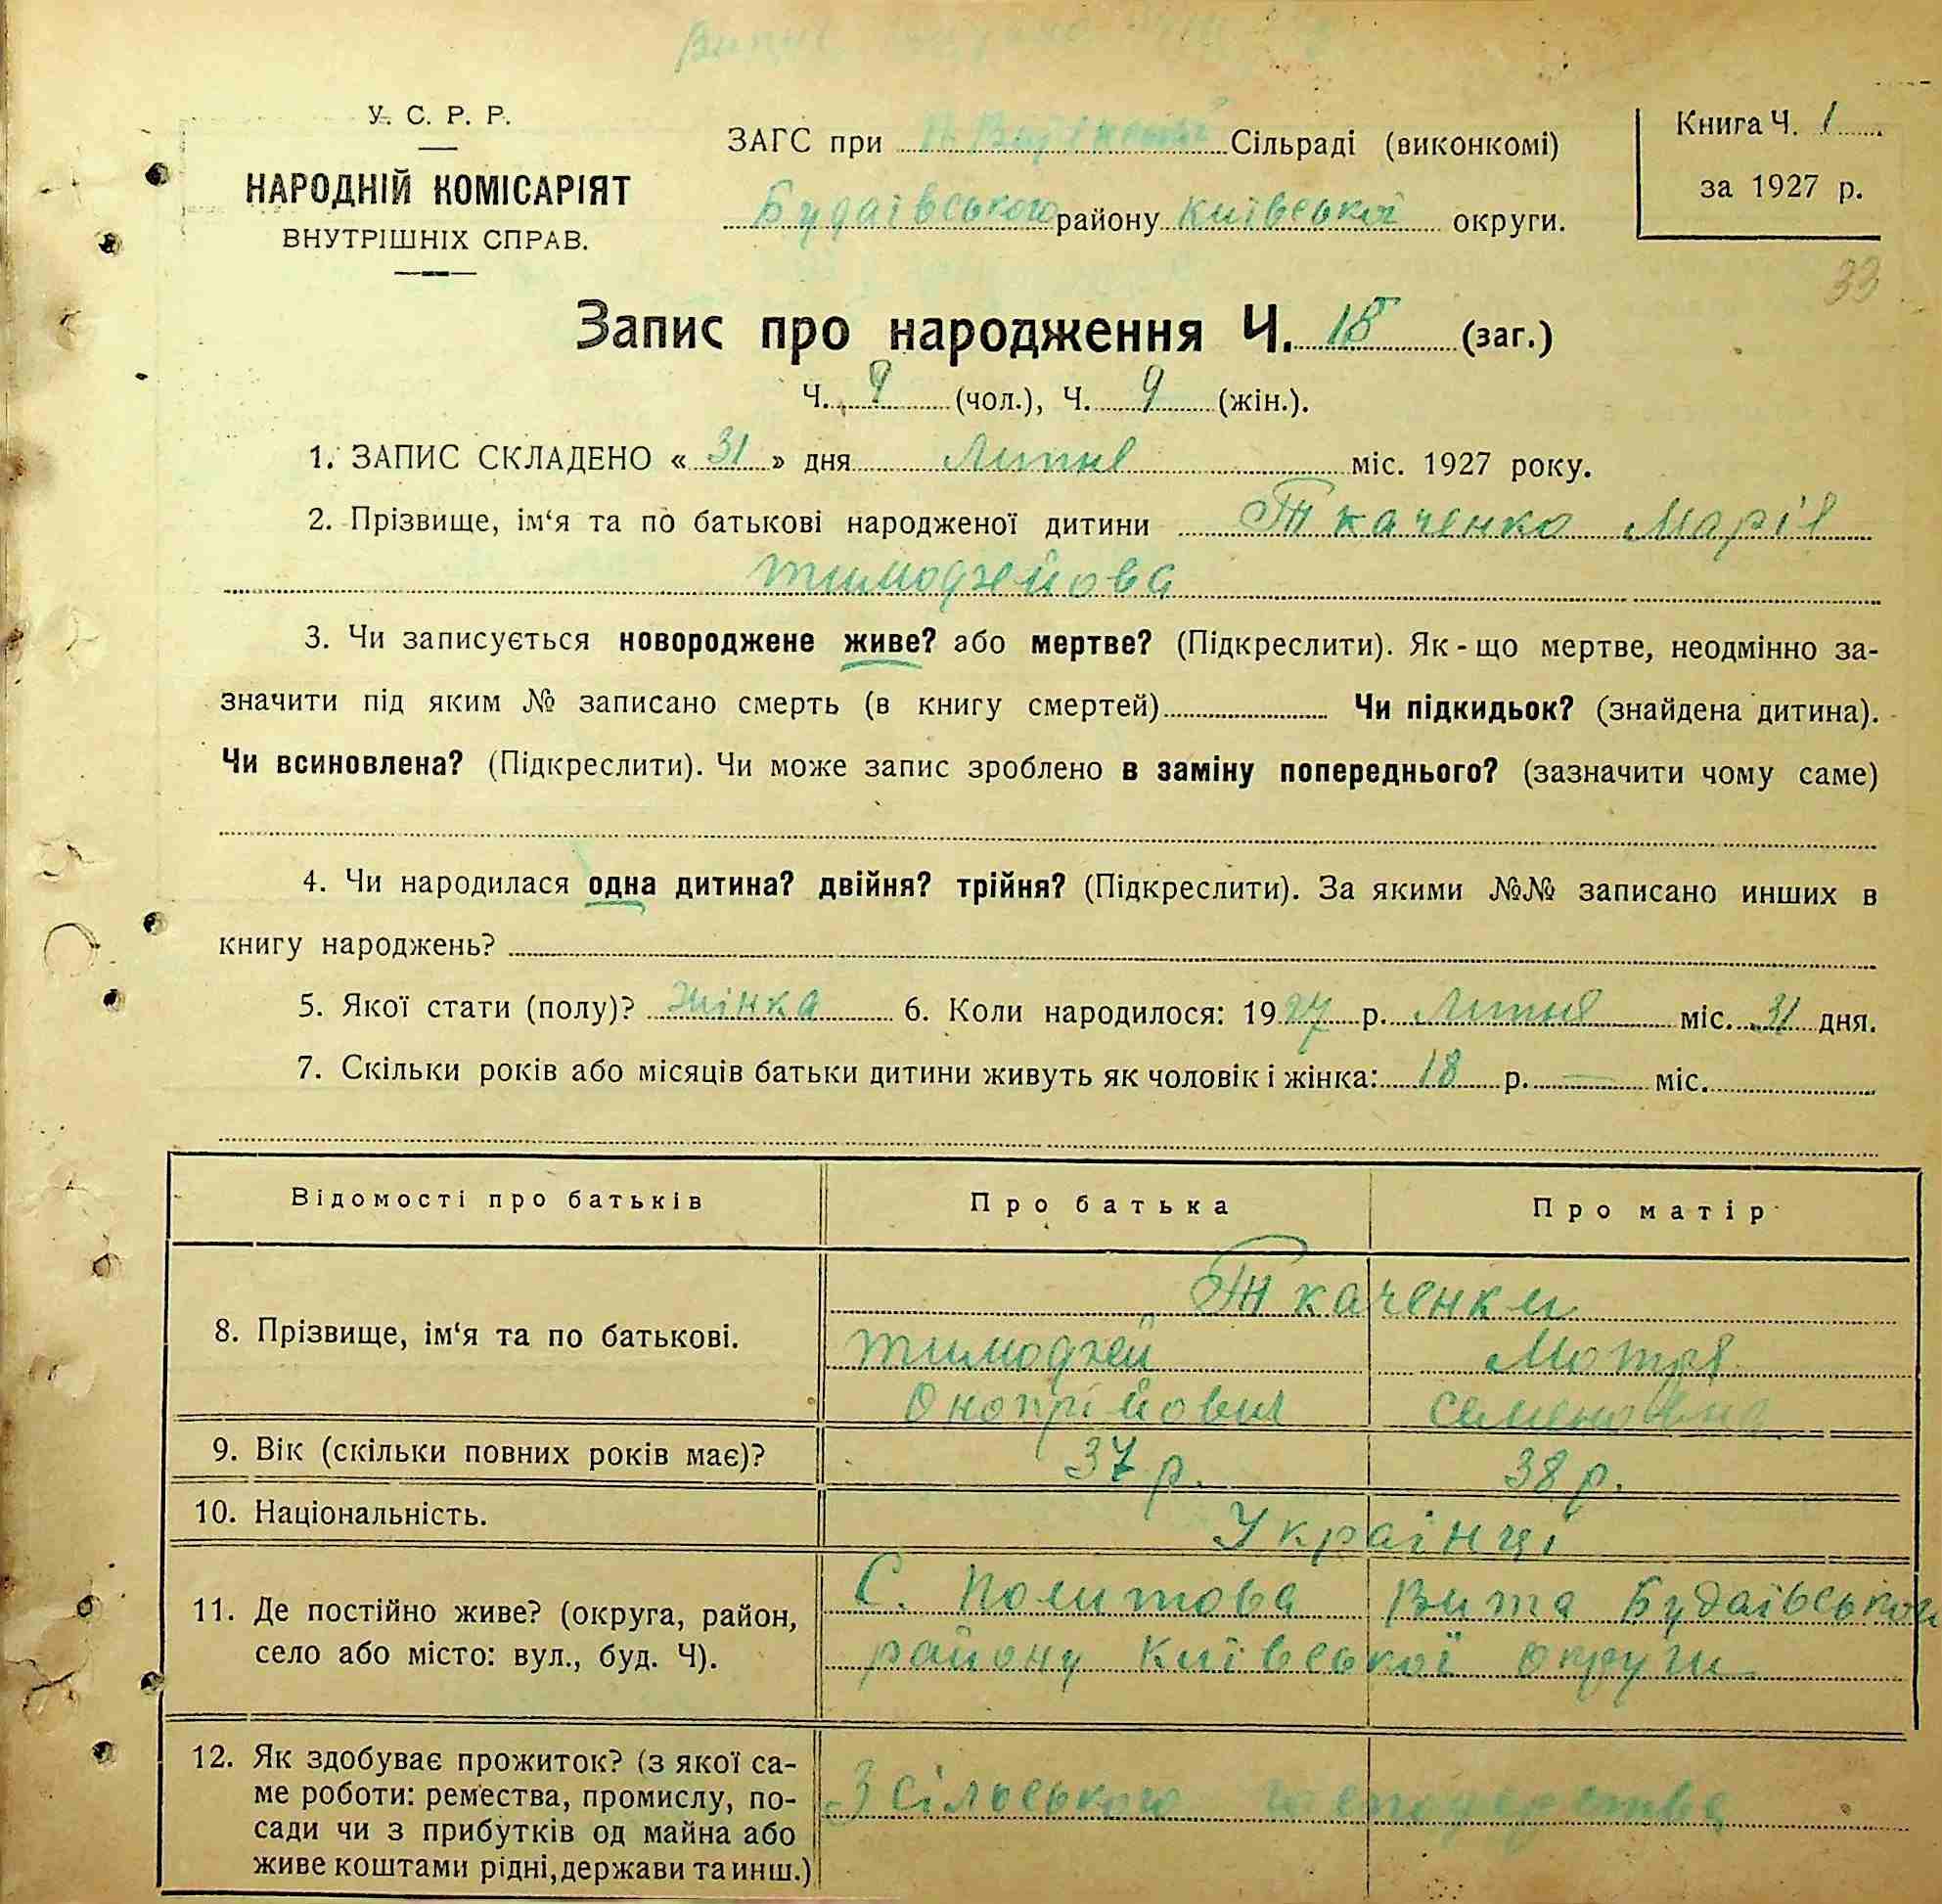 У. С. Р. Р.
НАРОДНІЙ КОМІСАРІЯТ
ВНУТРІШНІХ СПРАВ.
ЗАГС при Сільраді (виконкомі)
Будаївського району Київської округи.
Книга Ч. 1
за 1927 р.
33
Запис про народження Ч. 18 (заг.)
Ч. 9 (чол.), Ч. 9 (жін.).
1. ЗАПИС СКЛАДЕНО « 31 » дня Липня міс. 1927 року.
2. Прізвище, ім‘я та по батькові народженої дитини Ткаченко Марія
Тимофейова
3. Чи записується новороджене живе? або мертве? (Підкреслити). Як-що мертве, неодмінно за-
значити під яким № записано смерть (в книгу смертей) Чи підкидьок? (знайдена дитина).
Чи всиновлена? (Підкреслити). Чи може запис зроблено в заміну попереднього? (зазначити чому саме)
4. Чи народилася одна дитина? двійня? трійня? (Підкреслити). За якими №№ записано инших в
книгу народжень?
5. Якої стати (полу)? жінка 6. Коли народилося: 1927 р. Липня міс. 31 дня.
7. Скільки років або місяців батьки дитини живуть як чоловік і жінка: 18 р. — міс.
Відомості про батьків Про батька Про матір
Ткаченки
8. Прізвище, ім‘я та по батькові. Тимофей Мотря
Онопрійович Семеновна
9. Вік (скільки повних років має)? 37 р. 38 р.
10. Національність. Українці
11. Де постійно живе? (округа, район, С. Политова Вита Будаївського
село або місто: вул., буд. Ч). району Київської округи
12. Як здобуває прожиток? (з якої са-
ме роботи: ремества, промислу, по- З сільського господарства
сади чи з прибутків од майна або
живе коштами рідні, держави та инш.)